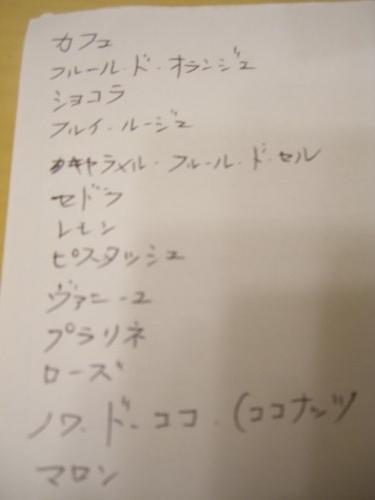 カフェ
フルール・ド・オランジュ
ショコラ
フルイ・ルージュ
キャラメル・フルール・ド・セル
セドラ
レモン
ピスタッシュ
ヴァニーユ
プラリネ
ローズ
ノワ・ド・ココ・(ココナッツ
マロン